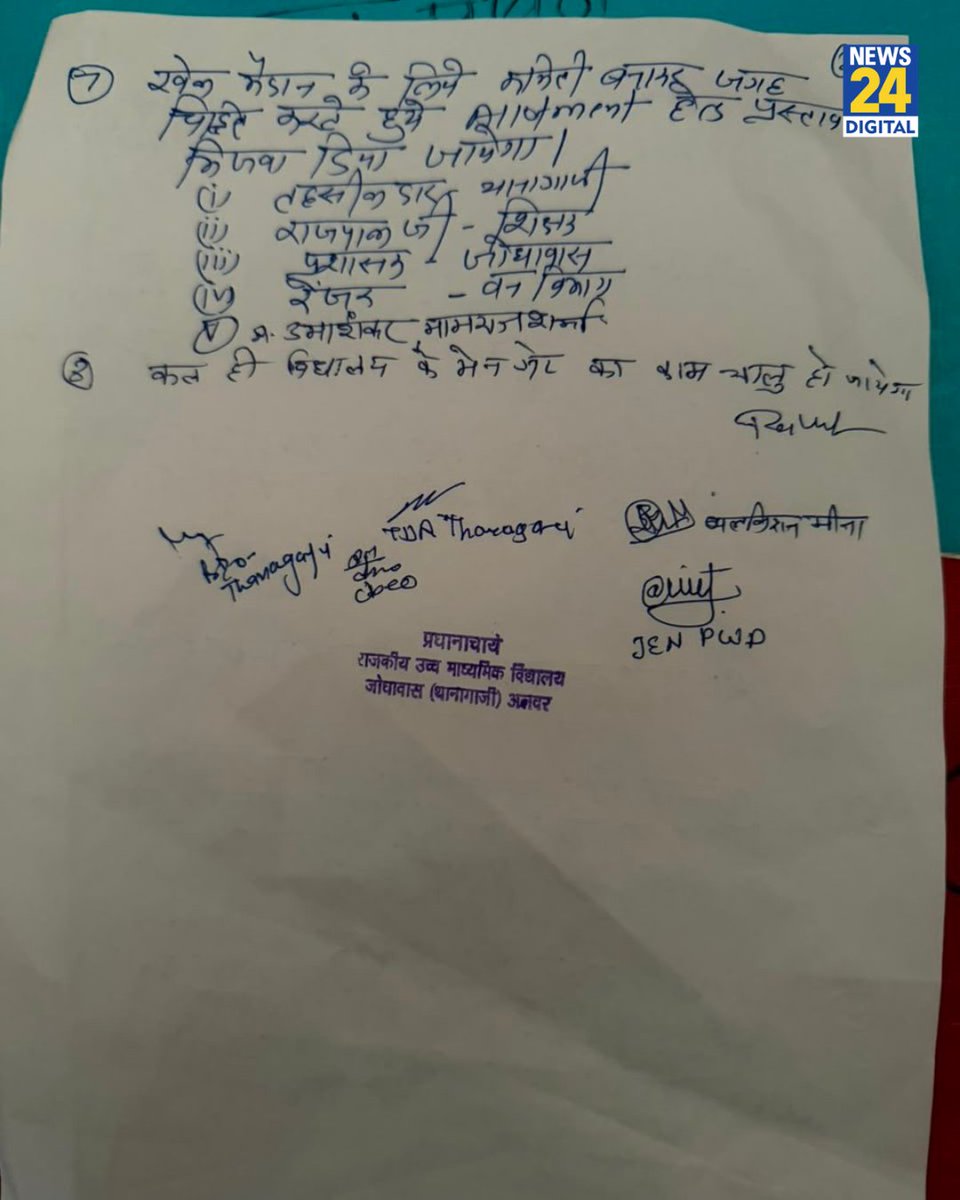 NEWS
24
DIGITAL
⑦ खेल मैदान के लिये कमेटी बनाकर जगह
चिह्नित करते हुये हेतु प्रस्ताव
भिजवा दिया जायेगा।
(i) तहसीलदार थानागाजी
(ii) राजपाल जी - शिक्षक
(iii) प्रशासक - जोधावास
(iv) रेंजर - वन विभाग
(v) उमाशंकर, मामराज शर्मा
⑧ कल ही विद्यालय के मेन गेट का काम चालु हो जायेगा
Thanagaji
Thanagaji
मीना
JEN PWD
प्रधानाचार्य
राजकीय उच्च माध्यमिक विद्यालय
जोधावास (थानागाजी) अलवर